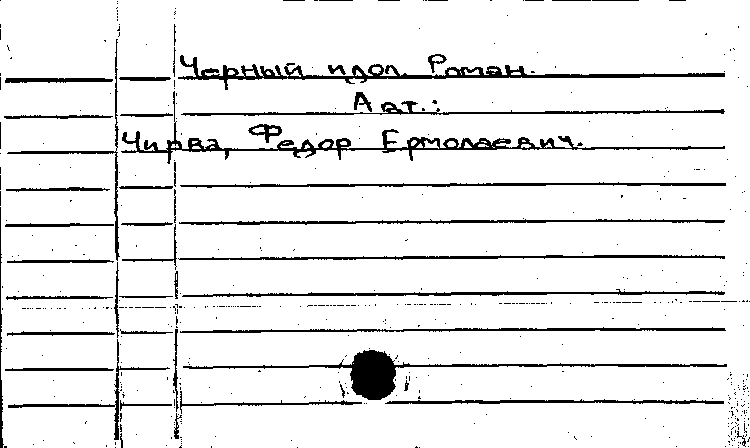 Черный идол. Роман.
Авт.:
Чирва, Федор Ермолаевич.